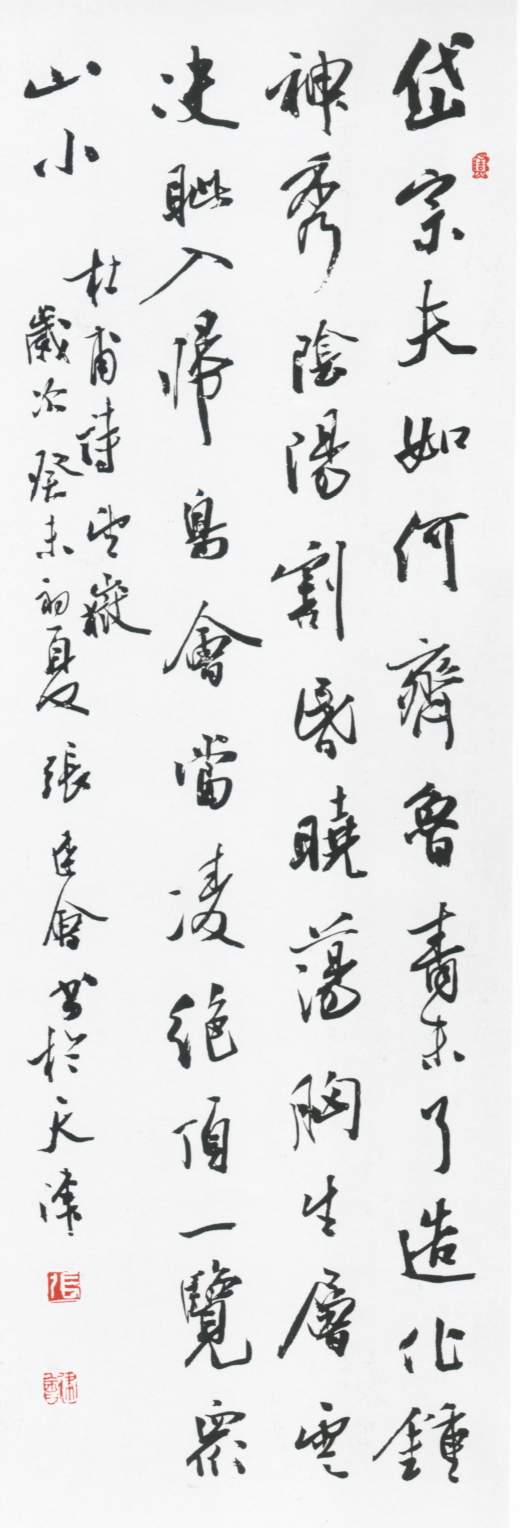 岱宗夫如何齊魯青未了造化鍾
神秀陰陽割昏曉蕩胸生層雲
决眦入歸鳥會當凌絕頂一覽衆
山小
杜甫詩望嶽
歲次癸未初夏張建會書於天津